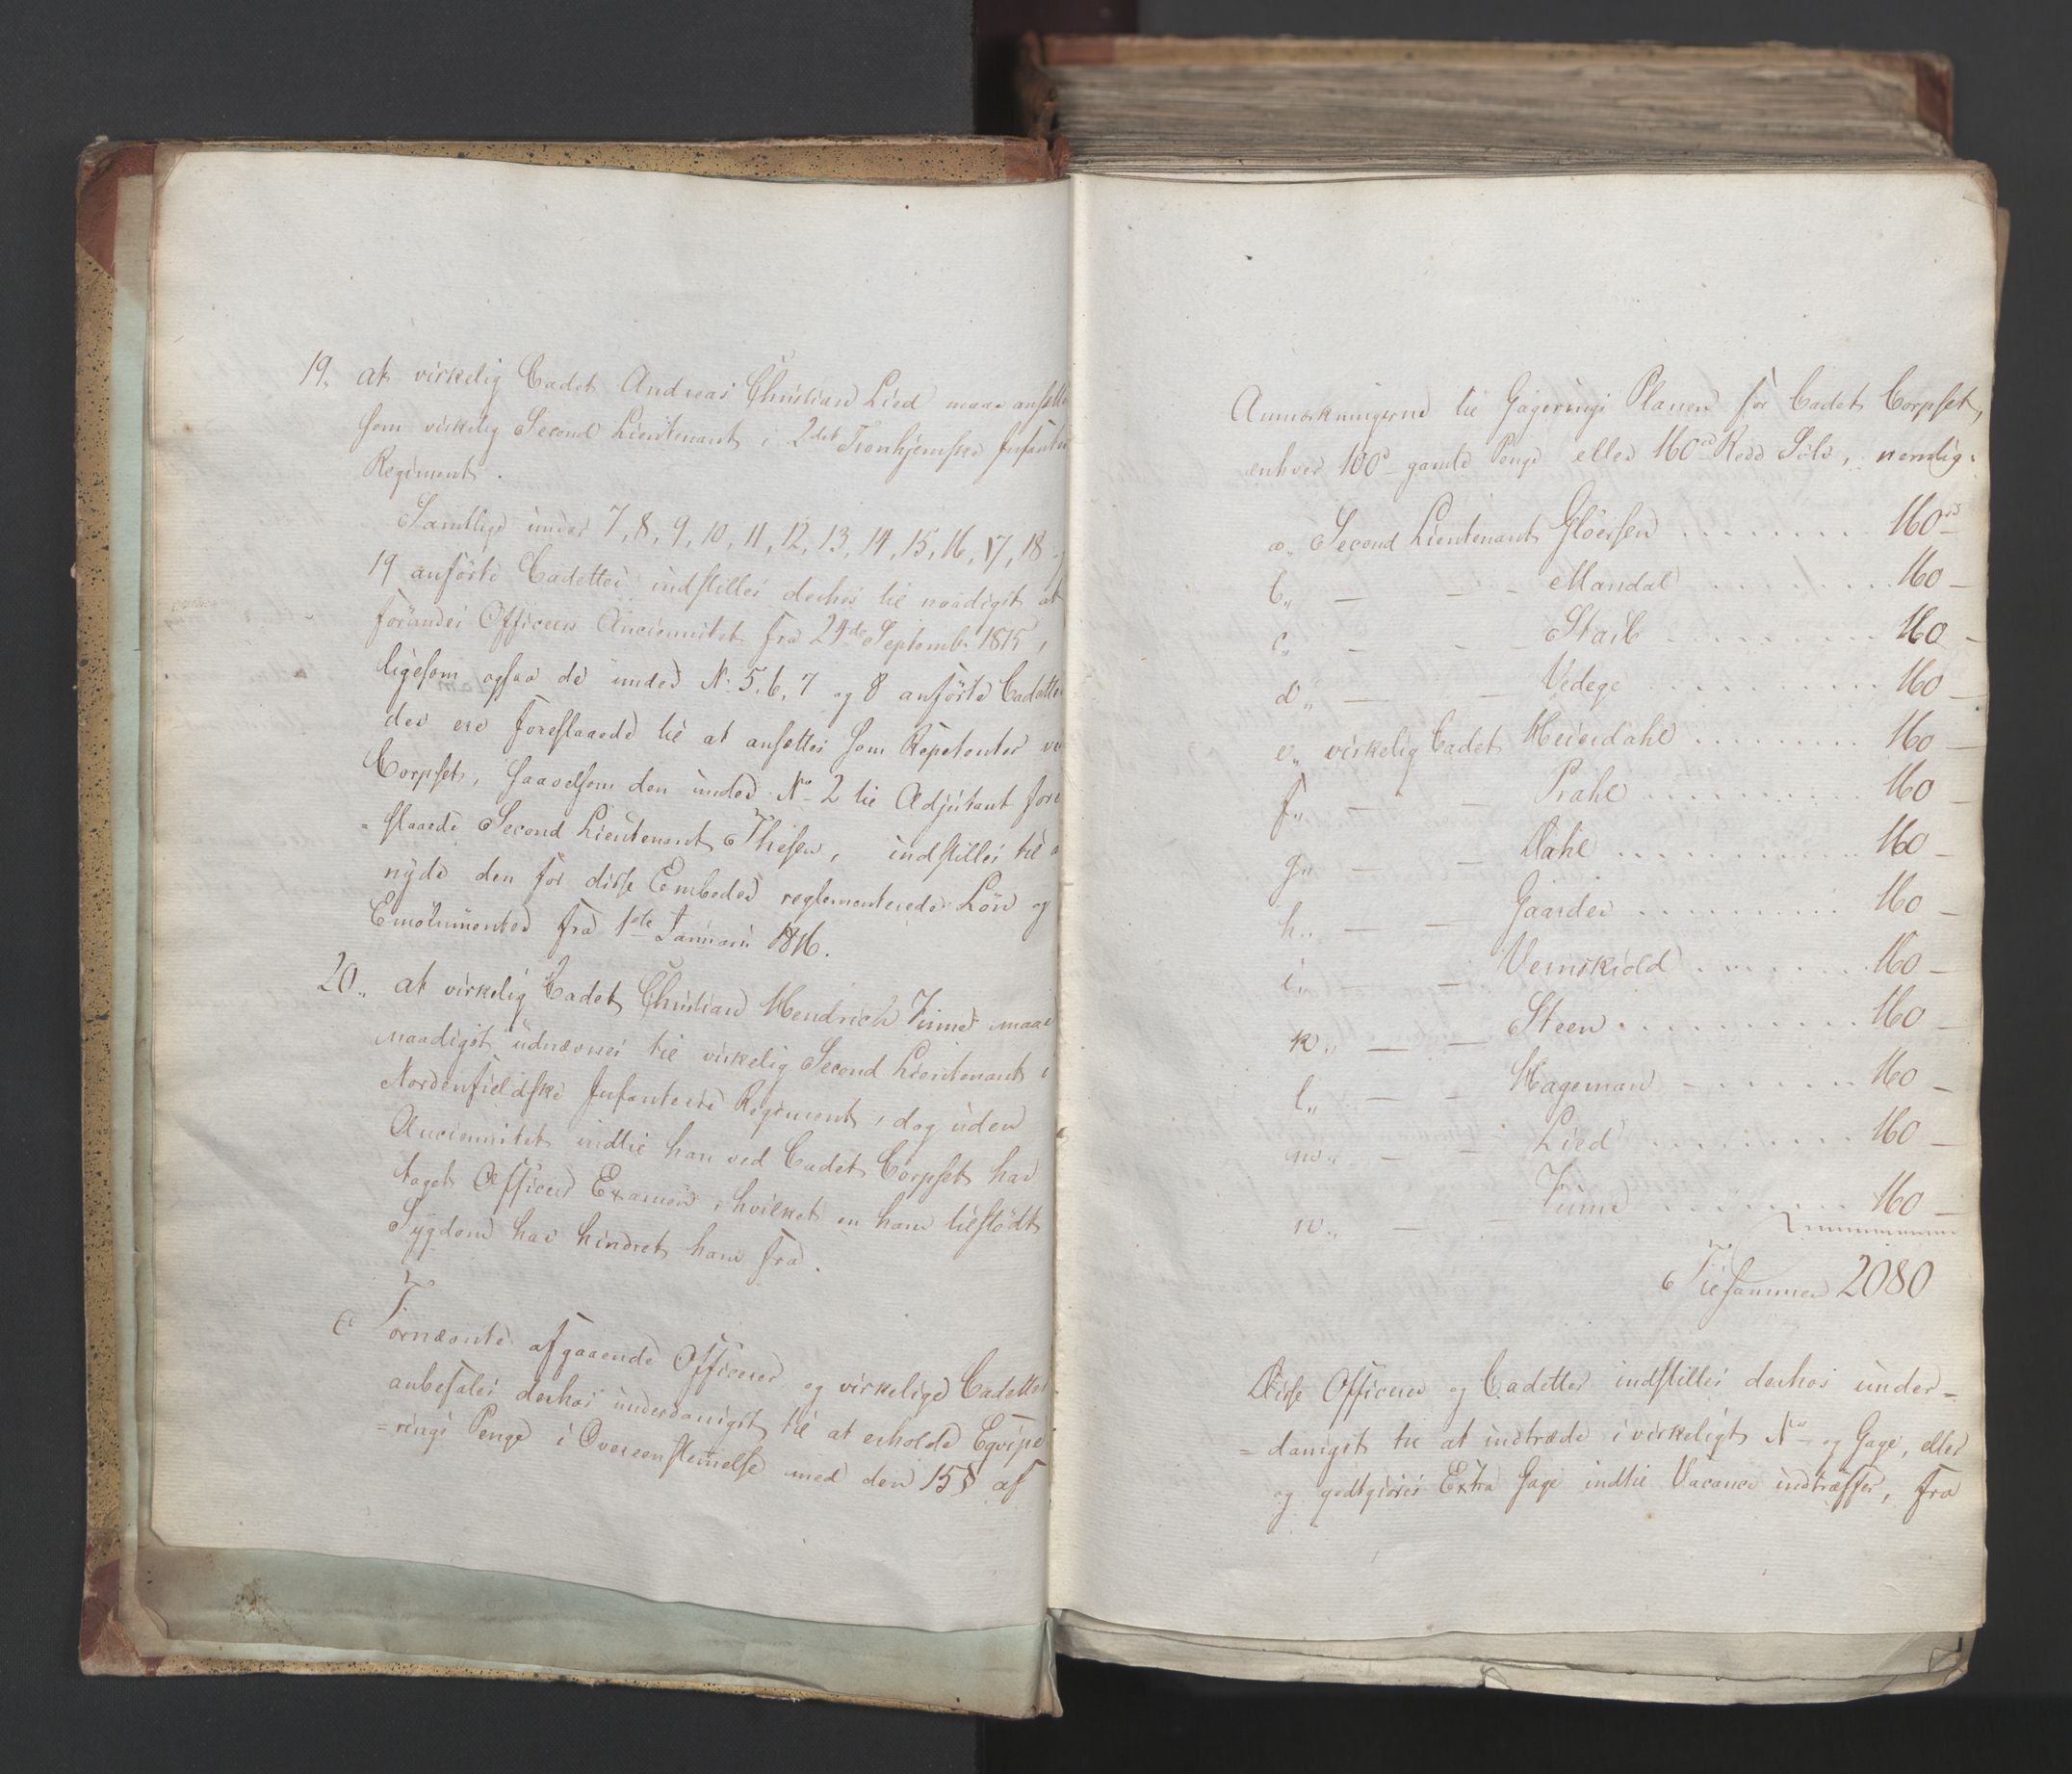 19. at virkelig Cadet Andreas Christian Lied maae ansætte
som virkelig Second Lieutenant i 2det Tronhjemske Infanteri
Regiment.
Samtlige under 7, 8, 9, 10, 11, 12, 13, 14, 15, 16, 17, 18
19 anførte Cadetter indstilles derhos til naadigst at
forundes Officeers Anciennitet fra 24de Septembr. 1815,
ligesom ogsaa de under N: 5, 6, 7 og 8 anførte Cadetter
der ere foreslaaede til at ansættes som Repetenter ve
Corpset, saavelsom den under No 2 til Adjutant fore
=slaaede Second Lieutenant Thesen, indstilles til
nyde den for disse Embeder reglementerede Løn og
Emolumenter fra 1ste Januarii 1816.
20. at virkelig Cadet Christian Hendrich Finne maae
naadigst udnævnes til virkelig Second Lieutenant i
Nordenfieldske Infanterie Regiment, dog uden
Anciennitet indtil han ved Cadet Corpset har
taget Officeer Examen, hvilket en ham tilstødt
Sygdom har hindret ham fra.
Fornævnte afgaaende Officerer og virkelige Cadetter
anbefales derhos underdanigst til at erholde Eqvipe
=rings Penge i Overeenstemelse med den 15 § af
Anmærkningerne til Gagerings Planen for Cadet Corpset,
enhver 100 gamle Penge eller 160 Rdd Sølv, nemlig:
a. Second Lieutenant Gløersen ........ 160
b. — — Mandal ........ 160 —
c. — — Staib ........ 160 —
d. — — Vedege ........ 160 —
e. virkelig Cadet Heierdahl ........ 160 —
f. — — Prahl ........ 160 —
g. — — Dahl ........ 160 —
h. — — Gaarder ........ 160 —
i. — — Vernskiold ........ 160 —
k. — — Steen ........ 160 —
l. — — Hageman ........ 160 —
m. — — Lied ........ 160 —
n. — — Finne ........ 160 —
Tilsammen 2080
Disse Officerer og Cadetter indstilles derhos under=
=danigst til at indtræde i virkeligt No og Gage, eller
og godtgiøres Extra Gage indtil Vacance indtræffer, fra